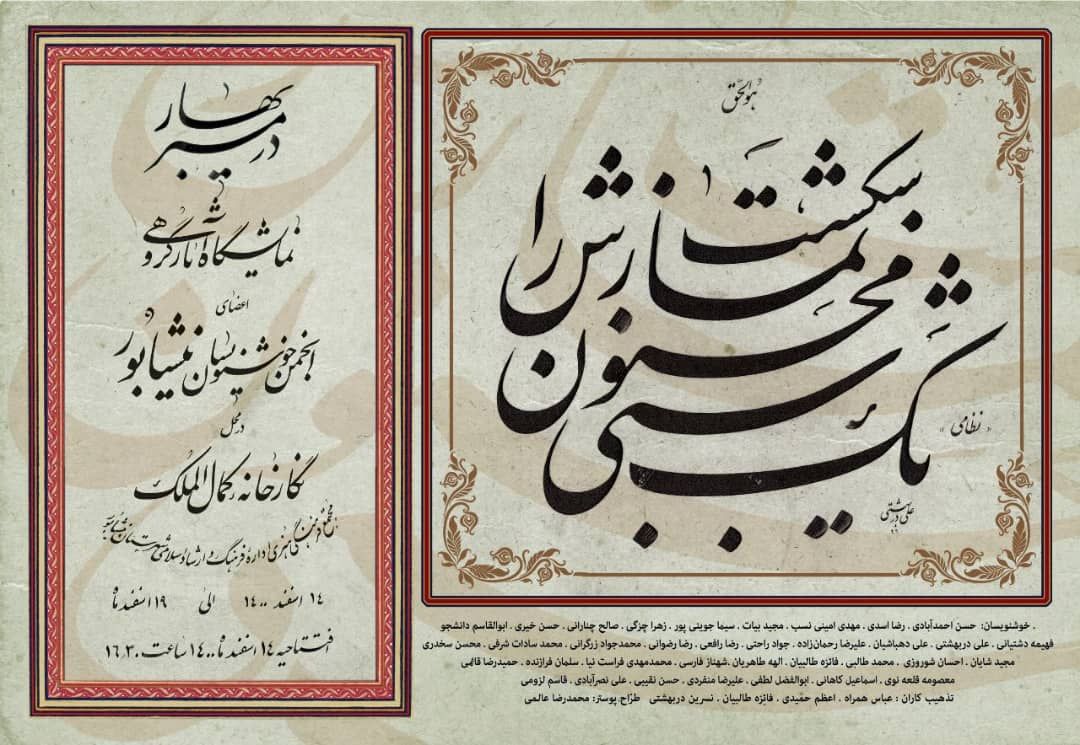 هوالحق
یک شبی مجنون نمازش را شکست
«نظامی»
علی دربهشتی
در مسیر بهار
نمایشگاه آثار گروهی
اعضای
انجمن خوشنویسان نیشابور
در محل
نگارخانه کمال الملک
مجتمع فرهنگی هنری اداره فرهنگ و ارشاد اسلامی شهرستان نیشابور
۱۴ اسفند ۱۴۰۰ الی ۱۹ اسفند ماه
افتتاحیه ۱۴ اسفند ماه ۱۴۰۰ ساعت ۱۶:۳۰
. خوشنویسان: حسن احمدآبادی . رضا اسدی . مهدی امینی نسب . مجید بیات . سیما جوینی پور . زهرا چزگی . صالح چنارانی . حسن خیری . ابوالقاسم دانشجو
فهیمه دشتبانی . علی دربهشتی . علی دهباشیان . علیرضا رحمان‌زاده . جواد راحتی . رضا رافعی . رضا رضوانی . محمدجواد زرگرانی . محمد سادات شرفی . محسن سخدری
مجید شایان . احسان شوروزی . محمد طالبی . فائزه طالبیان . الهه طاهریان .شهناز فارسی . محمدمهدی فراست نیا . سلمان فرازنده . حمیدرضا قائمی
معصومه قلعه نوی . اسماعیل کاهانی . ابوالفضل لطفی . علیرضا منفردی . حسن نقیبی . علی نصرآبادی . قاسم لزومی
تذهیب کاران : عباس همراه . اعظم حمیدی . فائزه طالبیان . نسرین دربهشتی طرّاح پوستر: محمدرضا عالمی